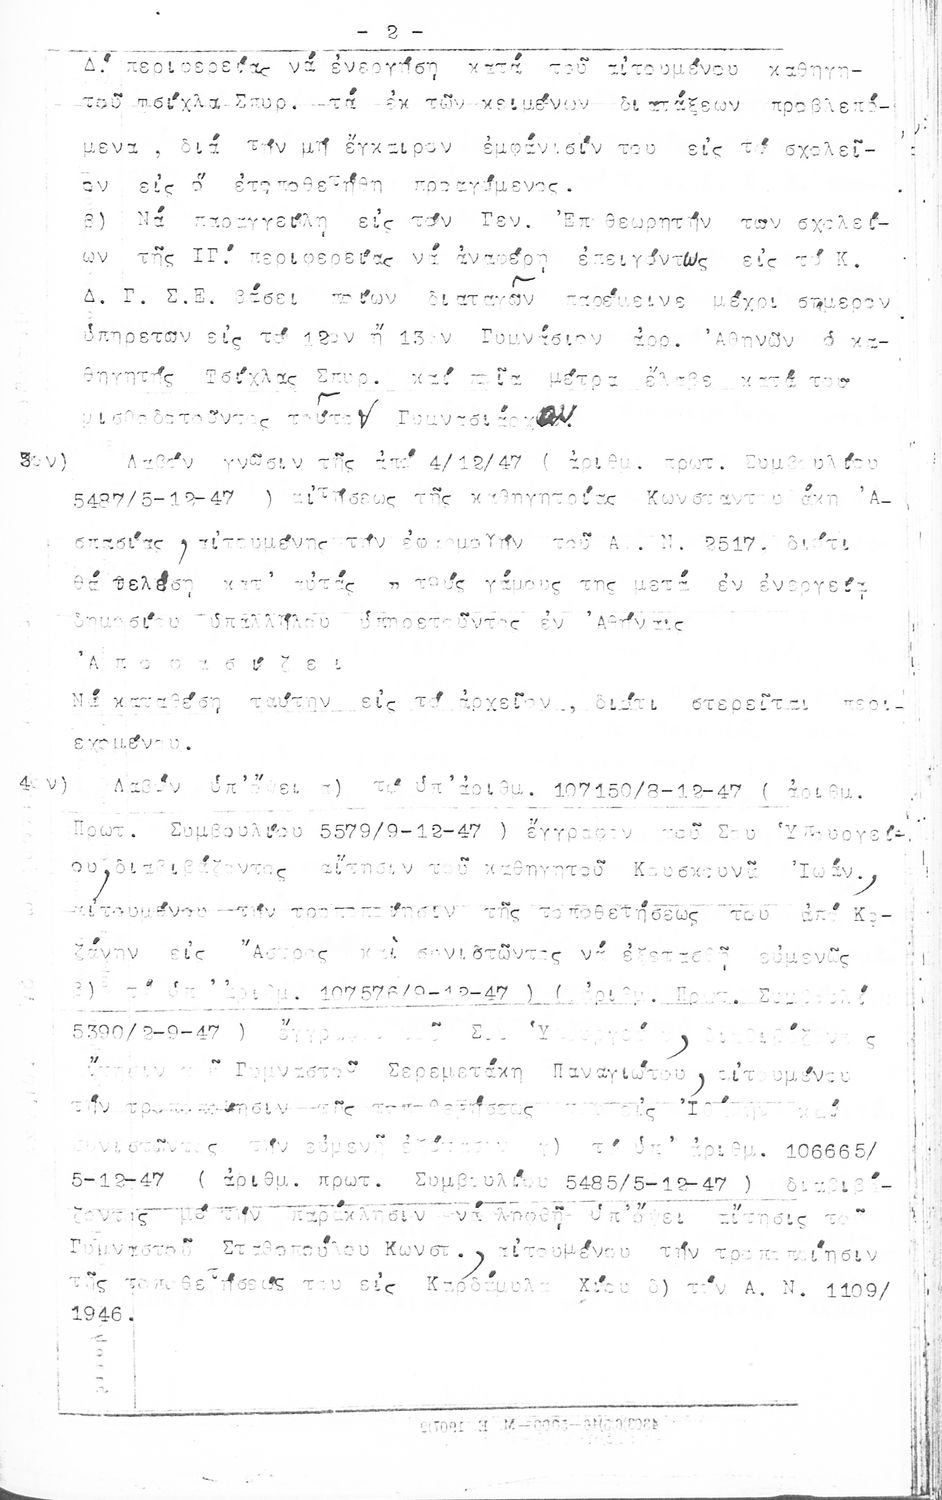 - 2 -
Δ.' περιφερείας νά ἐνεργήση κατά τοῦ αἰτουμένου καθηγη-
τοῦ Τσίχλα Σπυρ. τά ἐκ τῶν κειμένων διατάξεων προβλεπό-
μενα , διά τήν μή ἔγκαιρον ἐμφάνισίν του εἰς τό σχολεῖ-
ον εἰς ὅ ἐτοποθετήθη προαγόμενος.
β) Νά παραγγείλη εἰς τόν Γεν. Ἐπιθεωρητήν των σχολεί-
ων τῆς ΙΓ.' περιφερείας νά ἀναφέρη ἐπειγόντως εἰς τό Κ.
Δ. Γ. Σ.Ε. βάσει ποίων διαταγῶν παρέμεινε μέχρι σήμερον
ὑπηρετων εἰς τό 12ον ἤ 13ον Γυμνάσιον ἀρρ. Ἀθηνῶν ὁ κα-
θηγητής Τσίχλας Σπυρ. καί ποῖα μέτρα ἔλαβε κατά του
μισθοδοτοῦντος τοῦτον Γυμνασιάρχου.
3ον) Λαβόν γνῶσιν τῆς ἀπό 4/12/47 ( ἀριθμ. πρωτ. Συμβουλίου
5487/5-12-47 ) αἰτήσεως τῆς καθηγητρίας Κωνσταντουλάκη Ἀ-
σπασίας, αἰτουμένης τήν ἐφαρμογήν τοῦ Α. Ν. 2517. διότι
θά τελέση κατ' αὐτάς " τούς γάμους της μετά ἐν ἐνεργεία
δημοσίου ὑπαλλήλου ὑπηρετοῦντος ἐν Ἀθήναις
Ἀ π ο φ α σ ί ζ ε ι
Νά καταθέση ταύτην εἰς τό ἀρχεῖον , διότι στερεῖται περι-
εχομένου.
4ον) Λαβόν ὑπ' ὄψει α) τό ὑπ' ἀριθμ. 107150/8-12-47 ( ἀριθμ.
Πρωτ. Συμβουλίου 5579/9-12-47 ) ἔγγραφον τοῦ Σου Ὑπουργεί-
ου, διαβιβάζοντος αἴτησιν τοῦ καθηγητοῦ Κουσκουνᾶ Ἰωάν.,
αἰτουμένου τήν τροποποίησιν τῆς τοποθετήσεως του ἀπό Κο-
ζάνην εἰς Ἄστρος καί συνιστῶντος νά ἐξετασθῆ εὐμενῶς
β) τό ὑπ' ἀριθμ. 107576/9-12-47 ) ( ἀριθμ. Πρωτ. Συμβουλί
5390/2-9-47 ) ἔγγραφον τοῦ Σου Ὑπουργείου, διαβιβάζοντος
αἴτησιν τοῦ Γυμναστοῦ Σερεμετάκη Παναγιώτου, αἰτουμένου
τήν τροποποίησιν τῆς τοποθετήσεως εἰς καί
συνιστῶντος τήν εὐμενῆ ἐξέτασιν γ) τό ὑπ' ἀριθμ. 106665/
5-12-47 ( ἀριθμ. πρωτ. Συμβουλίου 5485/5-12-47 ) διαβιβά-
ζοντος μέ τήν παράκλησιν νά ληφθῆ ὑπ' ὄψει αἴτησις τοῦ
Γυμναστοῦ Σταθοπούλου Κωνστ., αἰτουμένου τήν τροποποίησιν
τῆς τοποθετήσεως του εἰς Καρδάμυλα Χίου δ) τόν Α. Ν. 1109/
1946.